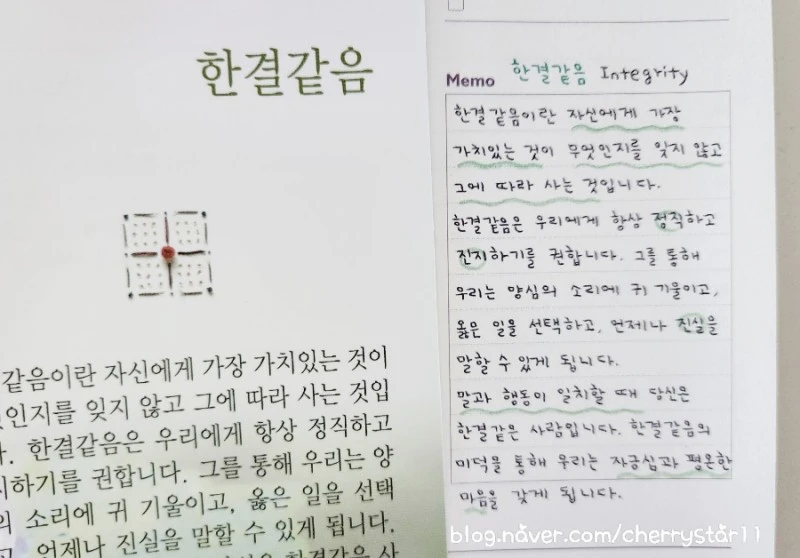 한결같음
같음이란 자신에게 가장 가치있는 것이
인지를 잊지 않고 그에 따라 사는 것입
. 한결같음은 우리에게 항상 정직하고
하기를 권합니다. 그를 통해 우리는 양
의 소리에 귀 기울이고, 옳은 일을 선택
, 언제나 진실을 말할 수 있게 됩니다.
Memo 한결같음 Integrity
한결같음이란 자신에게 가장
가치있는 것이 무엇인지를 잊지 않고
그에 따라 사는 것입니다.
한결같음은 우리에게 항상 정직하고
진지하기를 권합니다. 그를 통해
우리는 양심의 소리에 귀 기울이고,
옳은 일을 선택하고, 언제나 진실을
말할 수 있게 됩니다.
말과 행동이 일치할 때 당신은
한결같은 사람입니다. 한결같음의
미덕을 통해 우리는 자긍심과 평온한
마음을 갖게 됩니다.
blog.naver.com/cherrystar11